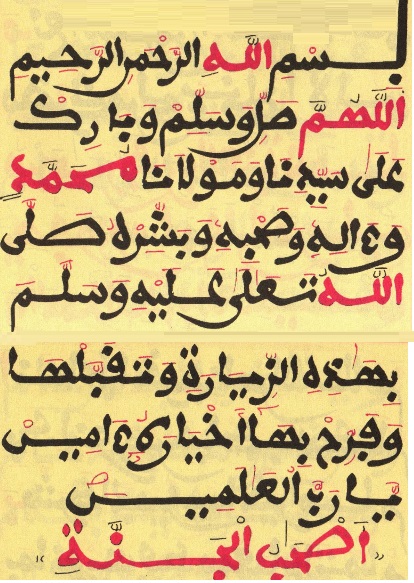 بِسْمِ اللَّهِ الرَّحْمٰنِ الرَّحِيمِ
اَللَّهُمَّ صَلِّ وَسَلِّمْ وَبَارِكْ
عَلَى سَيِّدِنَا وَمَوْلَانَا مُحَمَّدٍ
وَءَالِهِ وَصَحْبِهِ وَبَشِّرْهُ صَلَّى
اللَّهُ تَعَلَى عَلَيْهِ وَسَلَّمَ
بِهَذِهِ الزِّيَارَةِ وَتَقَبَّلْهَا
وَفَرِّحْ بِهَا أَخْيَارَهُ ءَامِينَ
يَا رَبَّ الْعَلَمِينَ
أَصْحَبُ الْجَنَّةِ